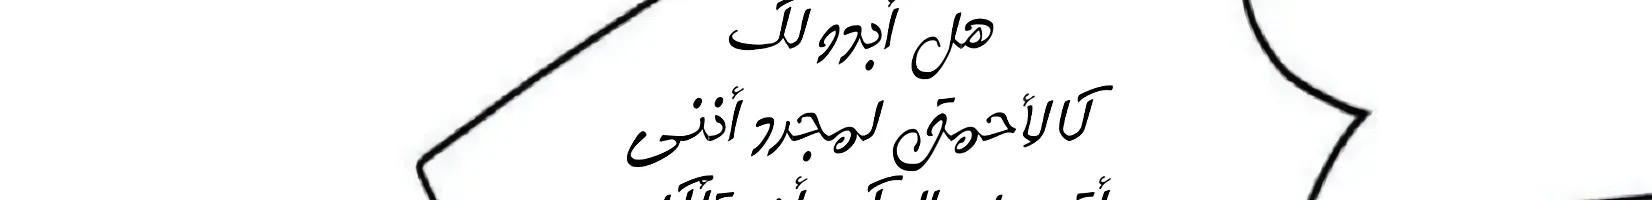 هل أبدو لك
كالأحمق لمجرد أنني